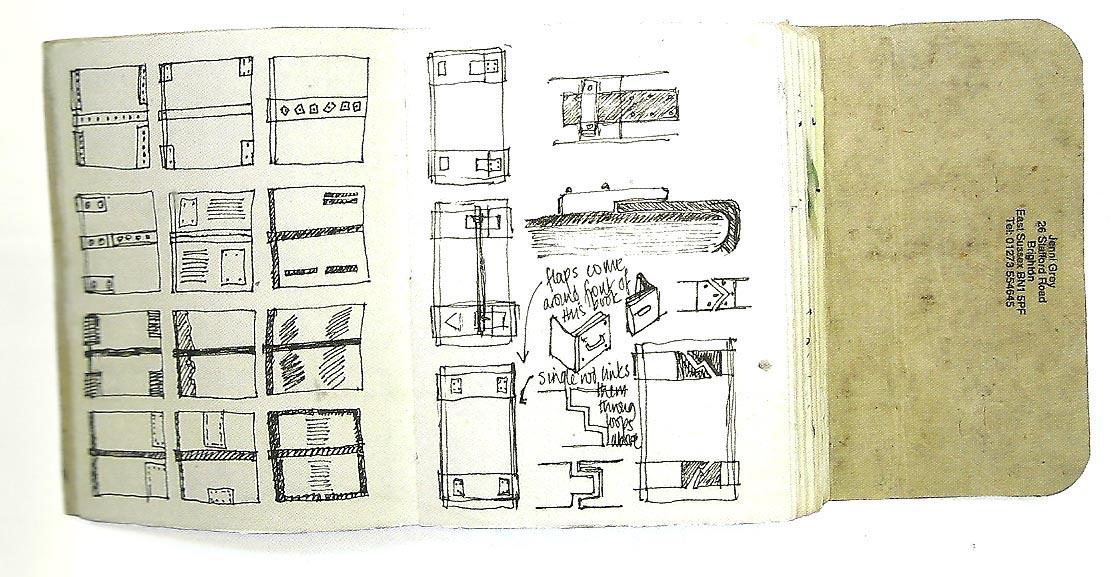 flaps come
around front of
this book
single rod links
them
through
loops
above
Jenni Grey
26 Stafford Road
Brighton
East Sussex BN1 5PF
Tel: 01273 554645